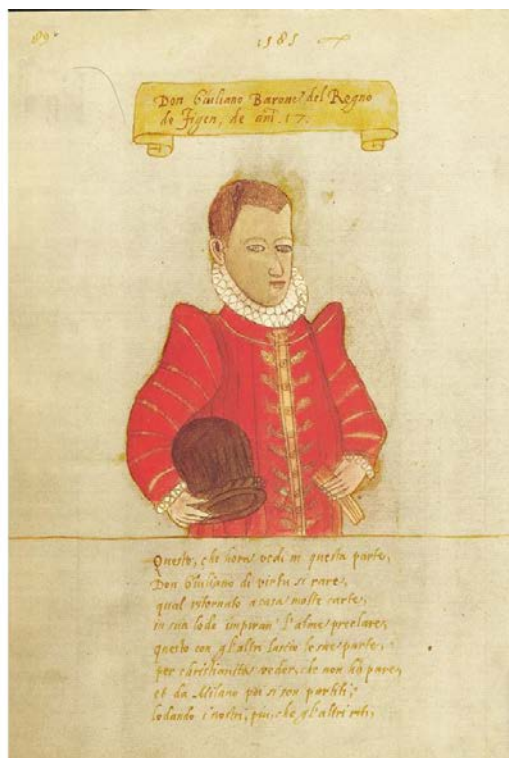 89.
1585
Don Giuliano Barone del Regno
de Figen, de añi .17.
Questo, che hora vedi in questa parte,
Don Giuliano di virtu si rare,
qual ritornato a casa molte carte,
in sua lode impiran' l'alme preclare,
questo con gl'altri lascio le sue parte,
per christianita veder, che non hà pare,
et da Milano poi si son partiti,
lodando i nostri, piu, che gl'altri riti,